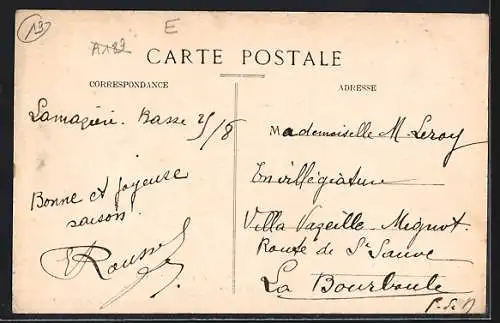 13
E
A182
CARTE POSTALE
CORRESPONDANCE
ADRESSE
Lamazière-Basse 25/8
Bonne et joyeuse
saison.
Roussel
Mademoiselle M. Leroy
En villégiature
Villa Vazeille-Mignot
Route de St Sauve
La Bourboule
P-de-D